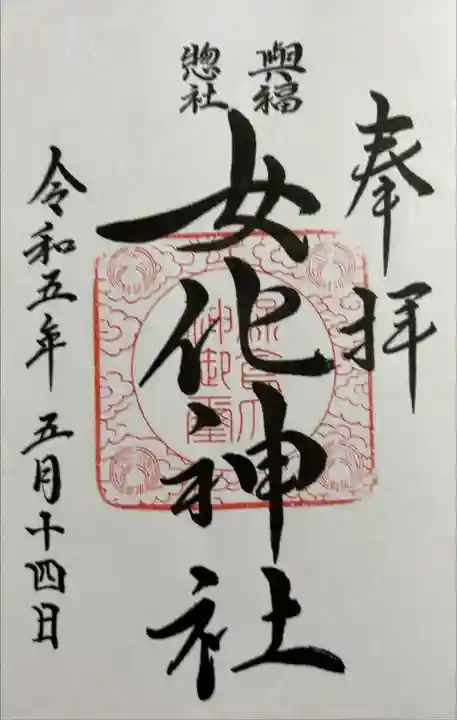 奉拝
興福
惣社
女化神社
令和五年 五月十四日